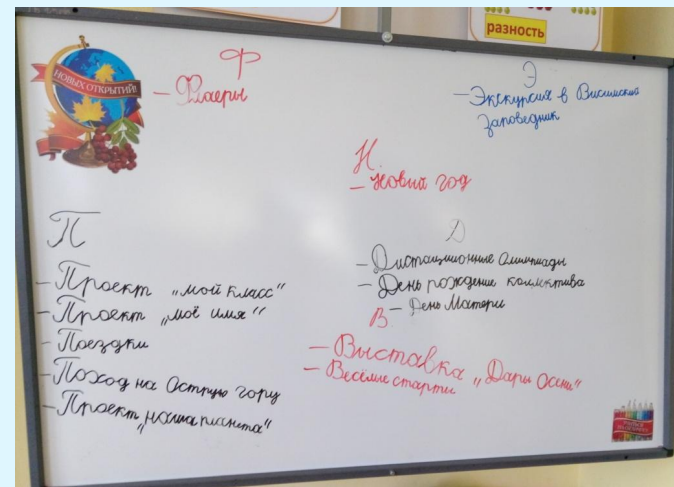 разность
НОВЫХ ОТКРЫТИЙ!
Ф
- Флаеры
Э
- Экскурсия в Висимский
заповедник
Н.
- Новый год
П
- Проект „мой класс“
- Проект „моё имя“
- Поездки
- Поход на Острую гору
- Проект
„наша планета“
Д
- Дистационные олимпиады
- День рождение коллектива
- День Матери
В
- Выставка „Дары Осени“
- Весёлые старты